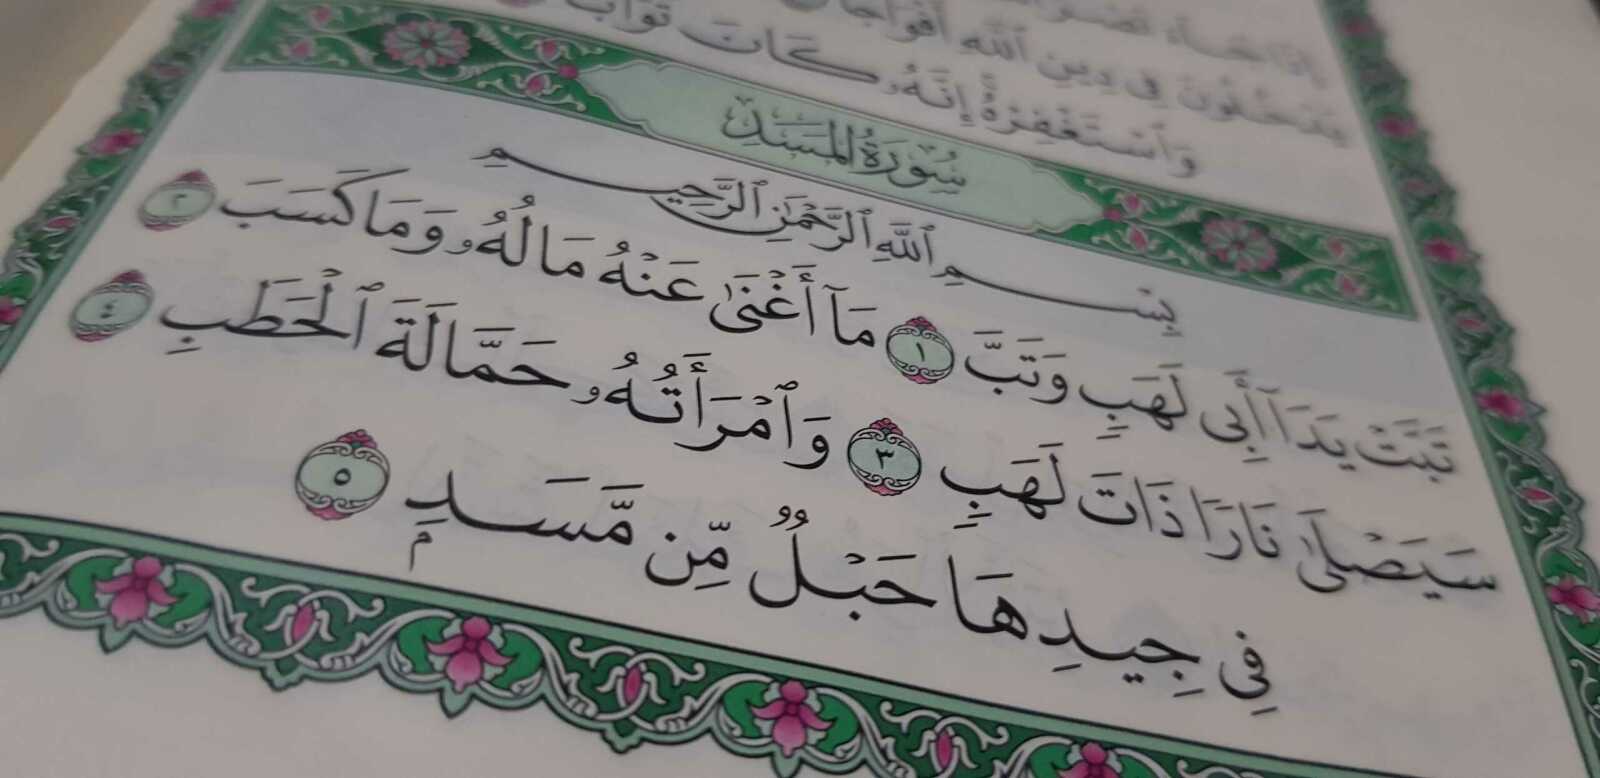 إِذَا جَاءَ نَصْرُ
يَدْخُلُونَ فِى دِينِ ٱللَّهِ أَفْوَاجًا
وَٱسْتَغْفِرْهُ إِنَّهُۥ كَانَ تَوَّابًا
سُورَةُ المَسَدِ
بِسْمِ ٱللَّهِ ٱلرَّحْمَٰنِ ٱلرَّحِيمِ
تَبَّتْ يَدَآ أَبِى لَهَبٍ وَتَبَّ ١ مَآ أَغْنَىٰ عَنْهُ مَالُهُۥ وَمَا كَسَبَ ٢
سَيَصْلَىٰ نَارًا ذَاتَ لَهَبٍ ٣ وَٱمْرَأَتُهُۥ حَمَّالَةَ ٱلْحَطَبِ ٤
فِى جِيدِهَا حَبْلٌ مِّن مَّسَدٍۭ ٥